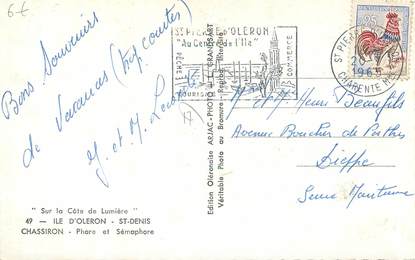 6€
Bons Souvenirs
de Vacances (trop courtes)
M. et M.
" Sur la Côte de Lumière "
49 — ILE D'OLERON - ST-DENIS
CHASSIRON - Phare et Sémaphore
Edition Oléronaise ARJAC-PHOTO - LE GRANDSART
Véritable Photo au Bromure - Reprod. Interdite
ST PIERRE d'OLERON
"Au Centre de l'Ile"
PECHE
TOURISME
COMMERCE
ST PIERRE
CHARENTE
0,25
M. et Mme Henri Beaufils
Avenue Boucher de Perthes
Dieppe
Seine Maritime